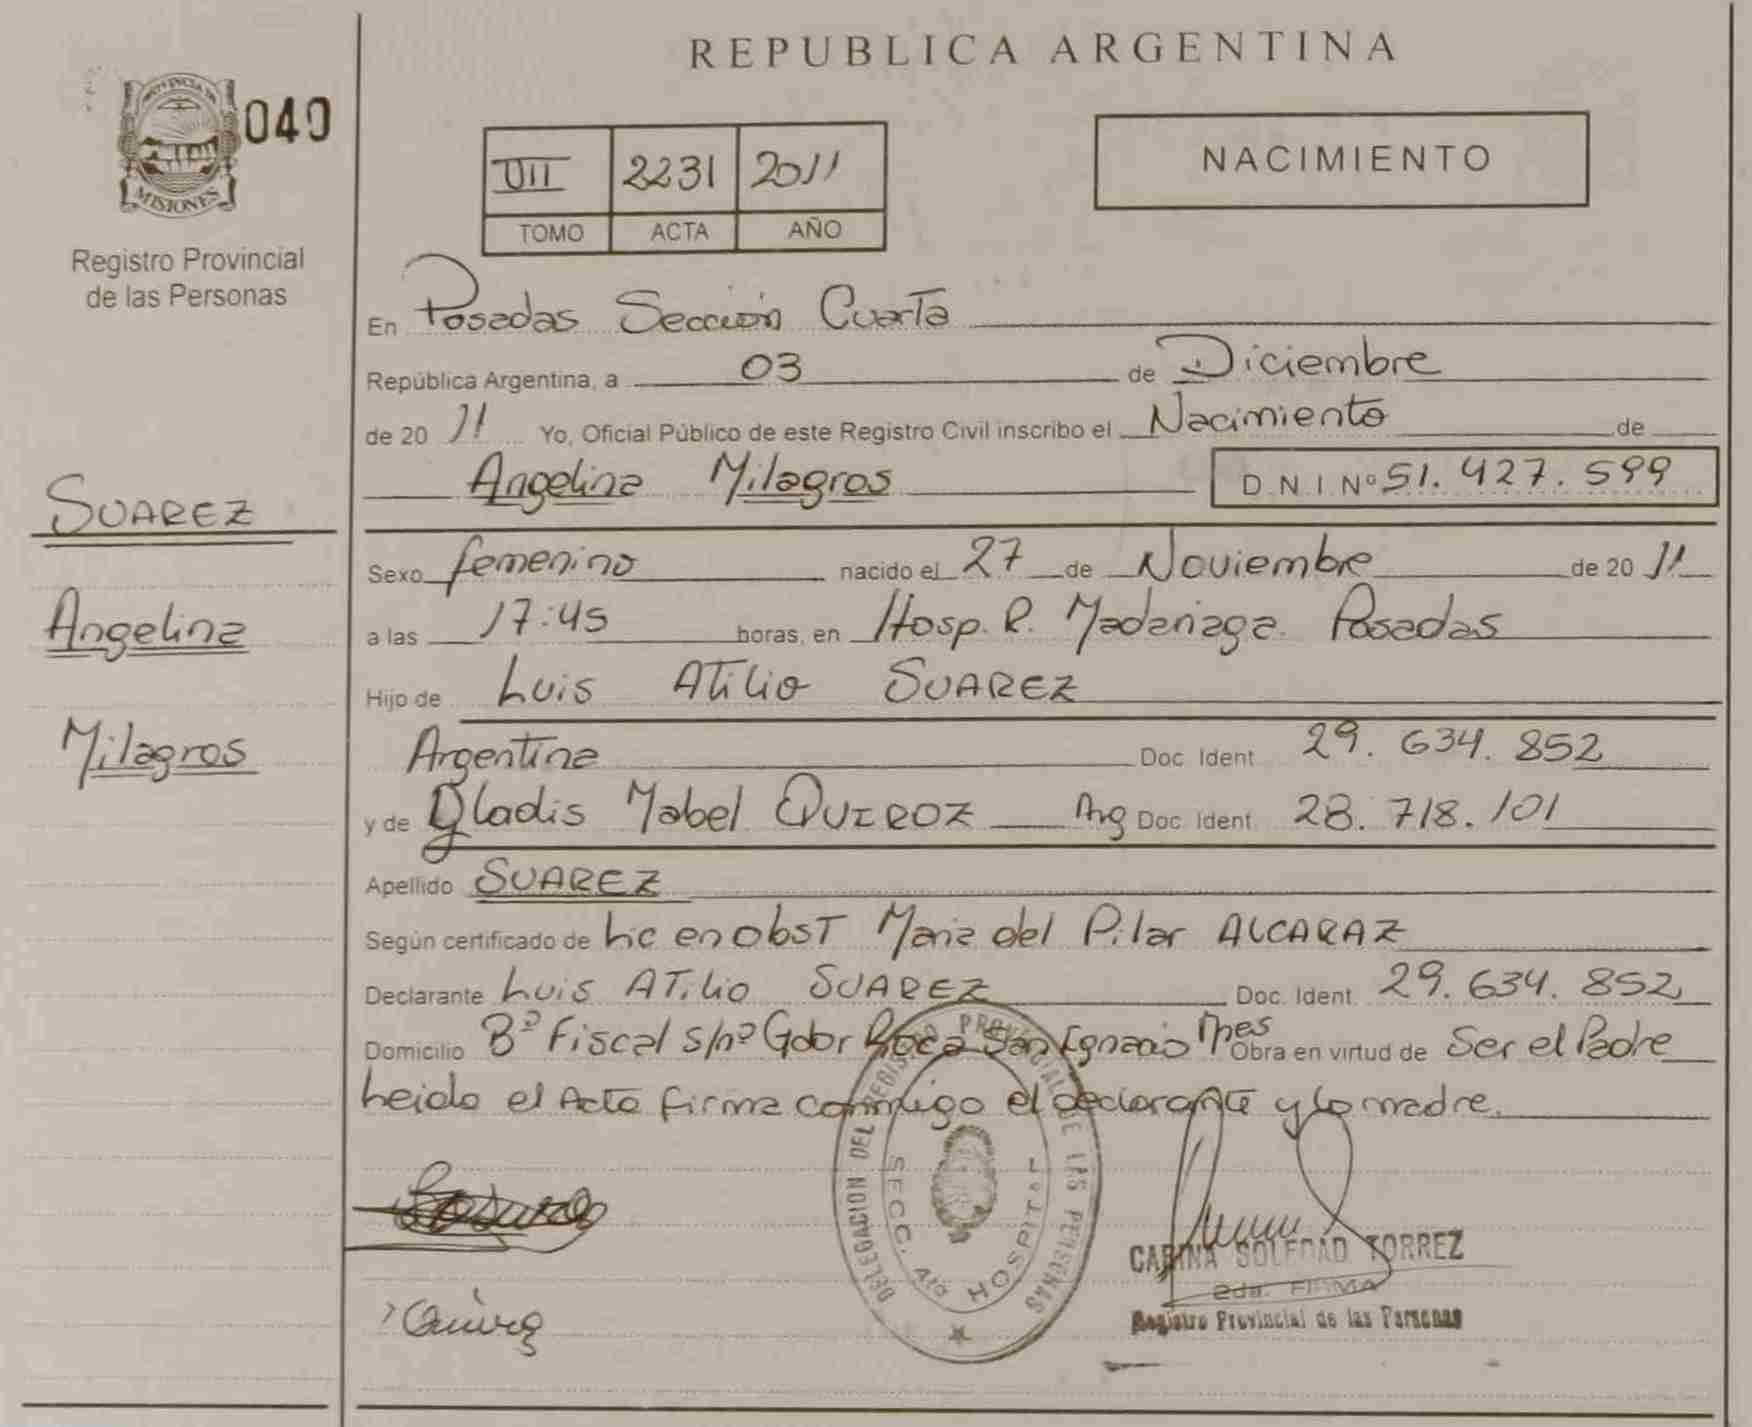 REPUBLICA ARGENTINA
PROVINCIA DE
MISIONES
040
Registro Provincial
de las Personas
VII 2231 2011
TOMO ACTA AÑO
NACIMIENTO
En Posadas Sección Cuarta
República Argentina, a 03 de Diciembre
de 20 11 Yo, Oficial Público de este Registro Civil inscribo el Nacimiento de
Angelina Milagros D.N.I. Nº 51.427.599
SUAREZ
Angelina
Milagros
Sexo femenino nacido el 27 de Noviembre de 20 11
a las 17:45 horas, en Hosp. R. Madariaga. Posadas
Hijo de Luis Atilio SUAREZ
Argentina Doc. Ident. 29.634.852
y de Gladis Mabel QUIROZ Arg Doc. Ident. 28.718.101
Apellido SUAREZ
Según certificado de Lic en obst Maria del Pilar ALCARAZ
Declarante Luis Atilio SUAREZ Doc. Ident. 29.634.852
Domicilio Bº Fiscal s/nº Gdor Roca San Ignacio Mnes Obra en virtud de Ser el Padre
Leida el Acta firma conmigo el declarante y la madre.
DELEGACION DEL REGISTRO PROVINCIAL DE LAS PERSONAS
SECC. 4ta HOSPITAL
CARINA SOLEDAD TORREZ
2da. FIRMA
Registro Provincial de las Personas